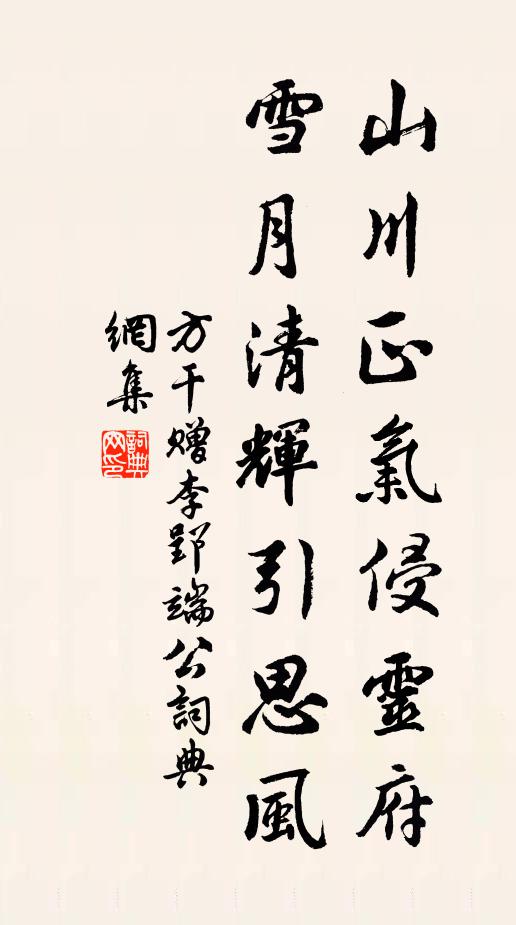 山川正氣侵靈府
雪月清輝引思風
方干贈李郢端公詞典
網集
詞典
网印